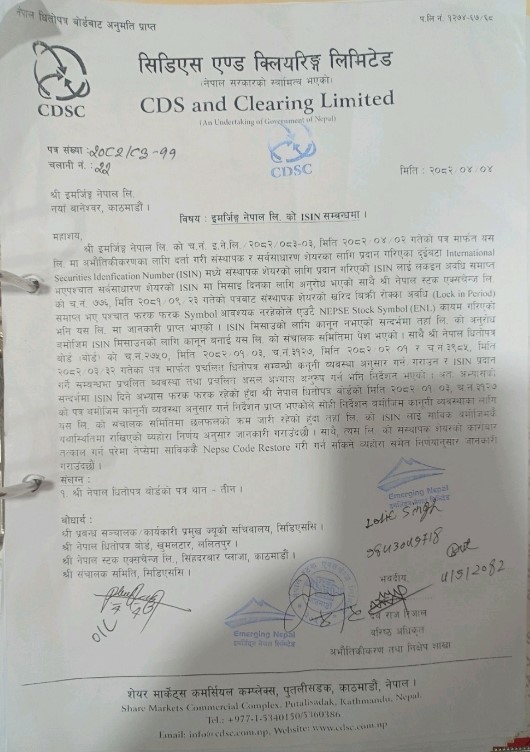 नेपाल धितोपत्र बोर्डबाट अनुमति प्राप्त
प.लि.नं. १२७४-६७/६८
सिडिएस एण्ड क्लियरिङ्ग लिमिटेड
(नेपाल सरकारको स्वामित्व भएको)
CDS and Clearing Limited
(An Undertaking of Government of Nepal)
CDSC
CDSC
पत्र संख्या :२०८२/८३-११
चलानी नं. : २२
मिति : २०८२.०४.०४
श्री इमर्जिङ्ग नेपाल लि.
नयाँ बानेश्वर, काठमाडौं।
विषय : इमर्जिङ्ग नेपाल लि. को ISIN सम्बन्धमा।
महाशय,
श्री इमर्जिङ्ग नेपाल लि. को च.नं. इ.ने.लि./२०८२/०८३-०३, मिति २०८२/०४/०२ गतेको पत्र मार्फत यस
लि. मा अभौतिकीकरणका लागि दर्ता गरी संस्थापक र सर्वसाधारण शेयरका लागि प्रदान गरिएका दुईवटा International
Securities Idenfication Number (ISIN) मध्ये संस्थापक शेयरको लागि प्रदान गरिएको ISIN लाई लकइन अवधि समाप्त
भएपश्चात सर्वसाधारण शेयरको ISIN मा मिसाई दिनका लागि अनुरोध भएको साथै श्री नेपाल स्टक एक्सचेन्ज लि.
को च.नं ७७६, मिति २०८१/०९/२३ गतेको पत्रबाट संस्थापक शेयरको खरिद बिक्री रोक्का अवधि (Lock in Period)
समाप्त भए पश्चात फरक फरक Symbol आवश्यक नरहेकोले एउटै NEPSE Stock Symbol (ENL) कायम गरिएको
भनि यस लि. मा जानकारी प्राप्त भएको। ISIN मिसाउको लागि कानून नभएको सन्दर्भमा तहाँ लि. को अनुरोध
बमोजिम ISIN मिसाउनको लागि कानून बनाई यस लि. को संचालक समितिमा पेश भएको। साथै श्री नेपाल धितोपत्र
बोर्ड (बोर्ड) को च.नं.२७५०, मिति २०८२/०१/०३, च.नं.३१२७, मिति २०८२/०२/०१ र च.नं.३९८५, मिति
२०८२/०३/३२ गतेका पत्र मार्फत प्रचलित धितोपत्र सम्बन्धी कानूनी व्यवस्था अनुसार गर्न गराउन र ISIN प्रदान
गर्ने सम्बन्धमा प्रचलित व्यवस्था तथा प्रचलित असल अभ्यास अनुरुप गर्न भनि निर्देशन भएको। अतः अभ्यासको
सन्दर्भमा ISIN दिने अभ्यास फरक फरक रहेको हुँदा श्री नेपाल धितोपत्र बोर्डको मिति २०८२/०१/०३, च.नं.३१२७
को पत्र बमोजिम कानूनी व्यवस्था अनुसार गर्न निर्देशन प्राप्त भएकोले सोही निर्देशन बमोजिम कानूनी व्यवस्थाका लागि
यस लि. को संचालक समितिमा छलफलको क्रम जारी रहेको हुँदा तहाँ लि. को ISIN लाई साविक बमोजिमकै
यथास्थितिमा राखिएको व्यहोरा निर्णय अनुसार जानकारी गराउँदछौं। साथै, त्यस लि. को संस्थापक शेयरको कारोबार
तत्काल गर्नु परेमा नेप्सेमा साविककै Nepse Code Restore गरी गर्न सकिने व्यहोरा समेत निर्णयानुसार जानकारी
गराउँदछौं।
संलग्न :
१. श्री नेपाल धितोपत्र बोर्डको पत्र थान – तीन।
Emerging Nepal
Singh
बोधार्थ :
श्री प्रबन्ध सञ्चालक/कार्यकारी प्रमुख ज्युको सचिवालय, सिडिएससि।
श्री नेपाल धितोपत्र बोर्ड, खुमलटार, ललितपुर।
श्री नेपाल स्टक एक्सचेन्ज लि., सिंहदरबार प्लाजा, काठमाडौं।
श्री संचालक समिति, सिडिएससि।
4/5/2082
भवदीय,
देव राज रिजाल
बरिष्ठ अधिकृत
अभौतिकीकरण तथा निक्षेप शाखा
Emerging Nepal
इमर्जिङ्ग नेपाल लिमिटेड
शेयर मार्केट्स कमर्सियल कम्प्लेक्स, पुतलीसडक, काठमाडौं, नेपाल।
Share Markets Commercial Complex, Putalisadak, Kathmandu, Nepal
Tel.: +977-1-5340150/5360386
Email: info@cdsc.com.np, Website: www.cdsc.com.np